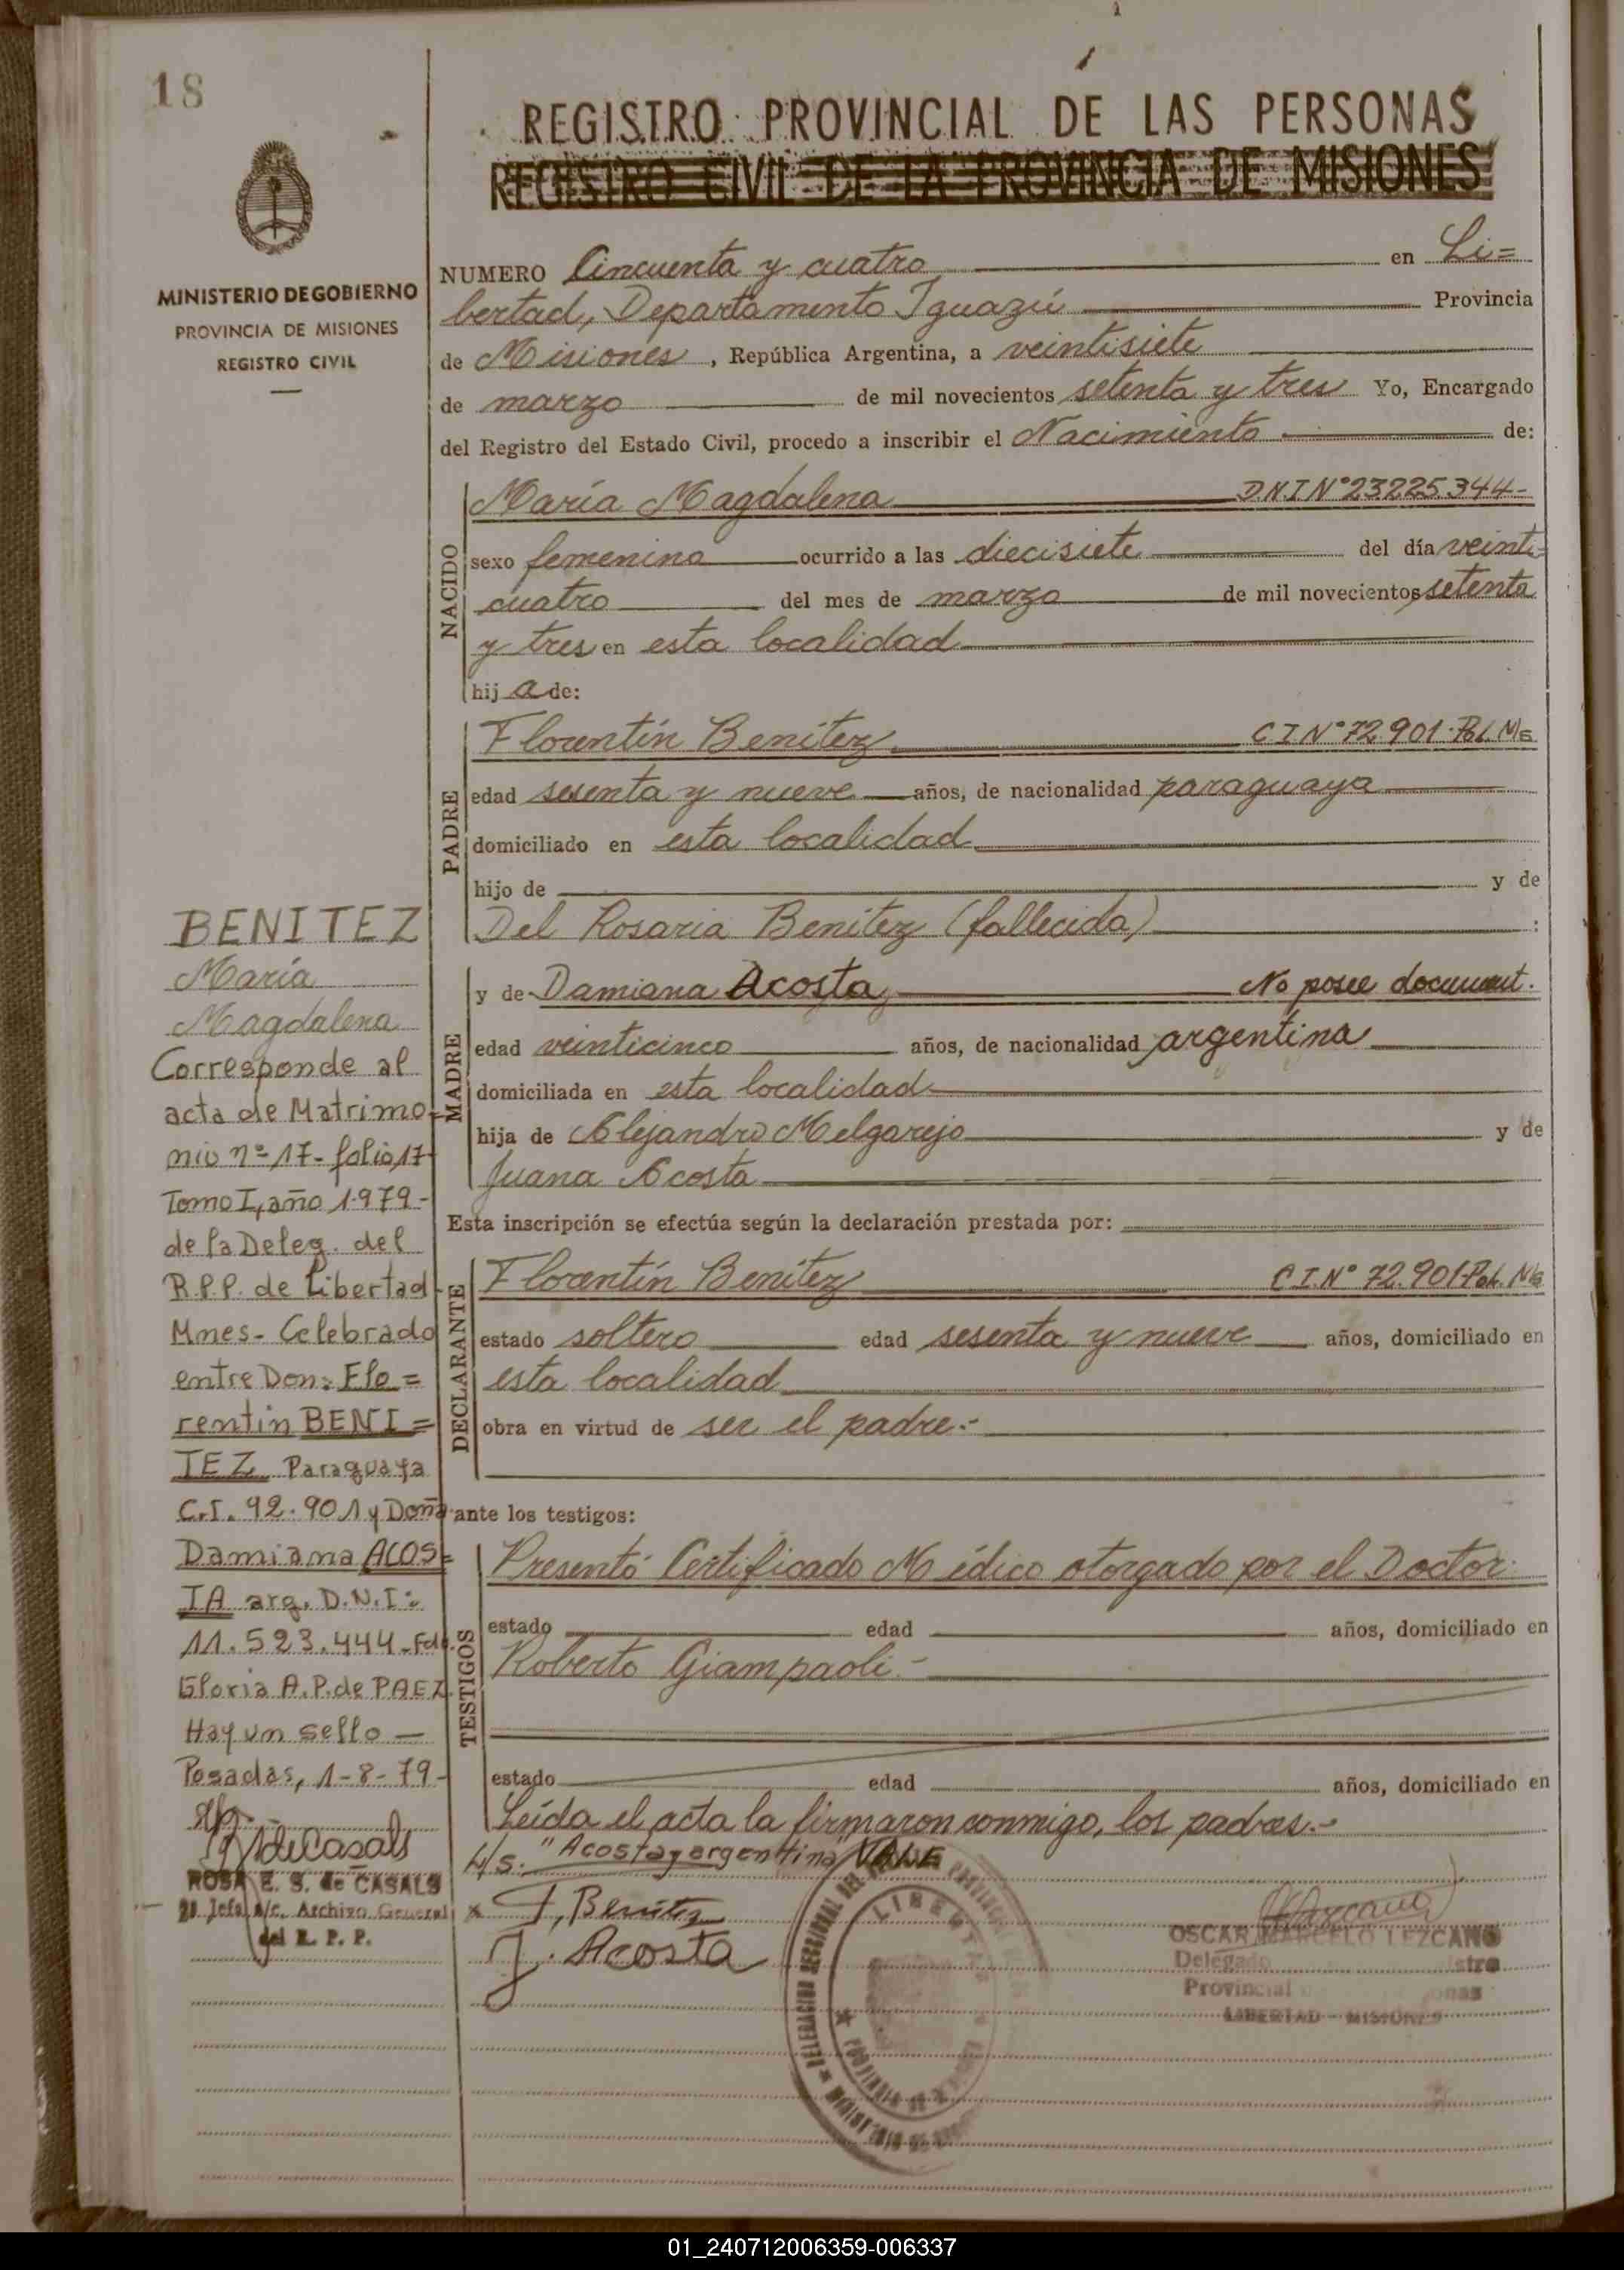 18
REGISTRO PROVINCIAL DE LAS PERSONAS
REGISTRO CIVIL DE LA PROVINCIA DE MISIONES
MINISTERIO DE GOBIERNO
PROVINCIA DE MISIONES
REGISTRO CIVIL
NUMERO Cincuenta y cuatro en Li=
bertad, Departamento Iguazú Provincia
de Misiones, República Argentina, a veintisiete
de marzo de mil novecientos setenta y tres Yo, Encargado
del Registro del Estado Civil, procedo a inscribir el Nacimiento de:
NACIDO
María Magdalena D N I N° 23225.344-
sexo femenino ocurrido a las diecisiete del día veinti=
cuatro del mes de marzo de mil novecientos setenta
y tres en esta localidad
hij a de:
PADRE
Florentín Benítez C I N° 72.901. Pol. Ms
edad sesenta y nueve años, de nacionalidad paraguaya
domiciliado en esta localidad
hijo de y de
Del Rosaria Benítez (fallecida) :
MADRE
y de Damiana Acosta, No posee document.
edad veinticinco años, de nacionalidad argentina
domiciliada en esta localidad
hija de Alejandro Melgarejo y de
Juana Acosta
Esta inscripción se efectúa según la declaración prestada por:
DECLARANTE
Florentín Benítez C I. N° 72.901 Pol. Ms
estado soltero edad sesenta y nueve años, domiciliado en
esta localidad
obra en virtud de ser el padre.-
ante los testigos:
TESTIGOS
Presentó Certificado Médico otorgado por el Doctor
estado edad años, domiciliado en
Roberto Giampaoli.-
estado edad años, domiciliado en
Leída el acta la firmaron conmigo, los padres.-
L/s: "Acosta, argentina" VALE
F, Benítez
J. Acosta
OSCAR MARCELO LEZCANO
Delegado
Provincial
LIBERTAD - MISIONES
LIBERTAD
BENITEZ
María
Magdalena
Corresponde al
acta de Matrimo-
nio nº 17- folio 17-
Tomo I, año 1.979-
de la Deleg. del
R.P.P. de Libertad-
Mnes- Celebrado
entre Don: Flo=
rentin BENI=
TEZ Paraguaya
C.I. 92.901 y Doña
Damiana ACOS=
TA arg. D.N.I:
11.523.444-Fdo.
Gloria A.P. de PAEZ.
Hay un sello —
Posadas, 1-8-79-
ROSA E. S. de CASALS
2º Jefa a/c. Archivo General
del R. P. P.
01_240712006359-006337